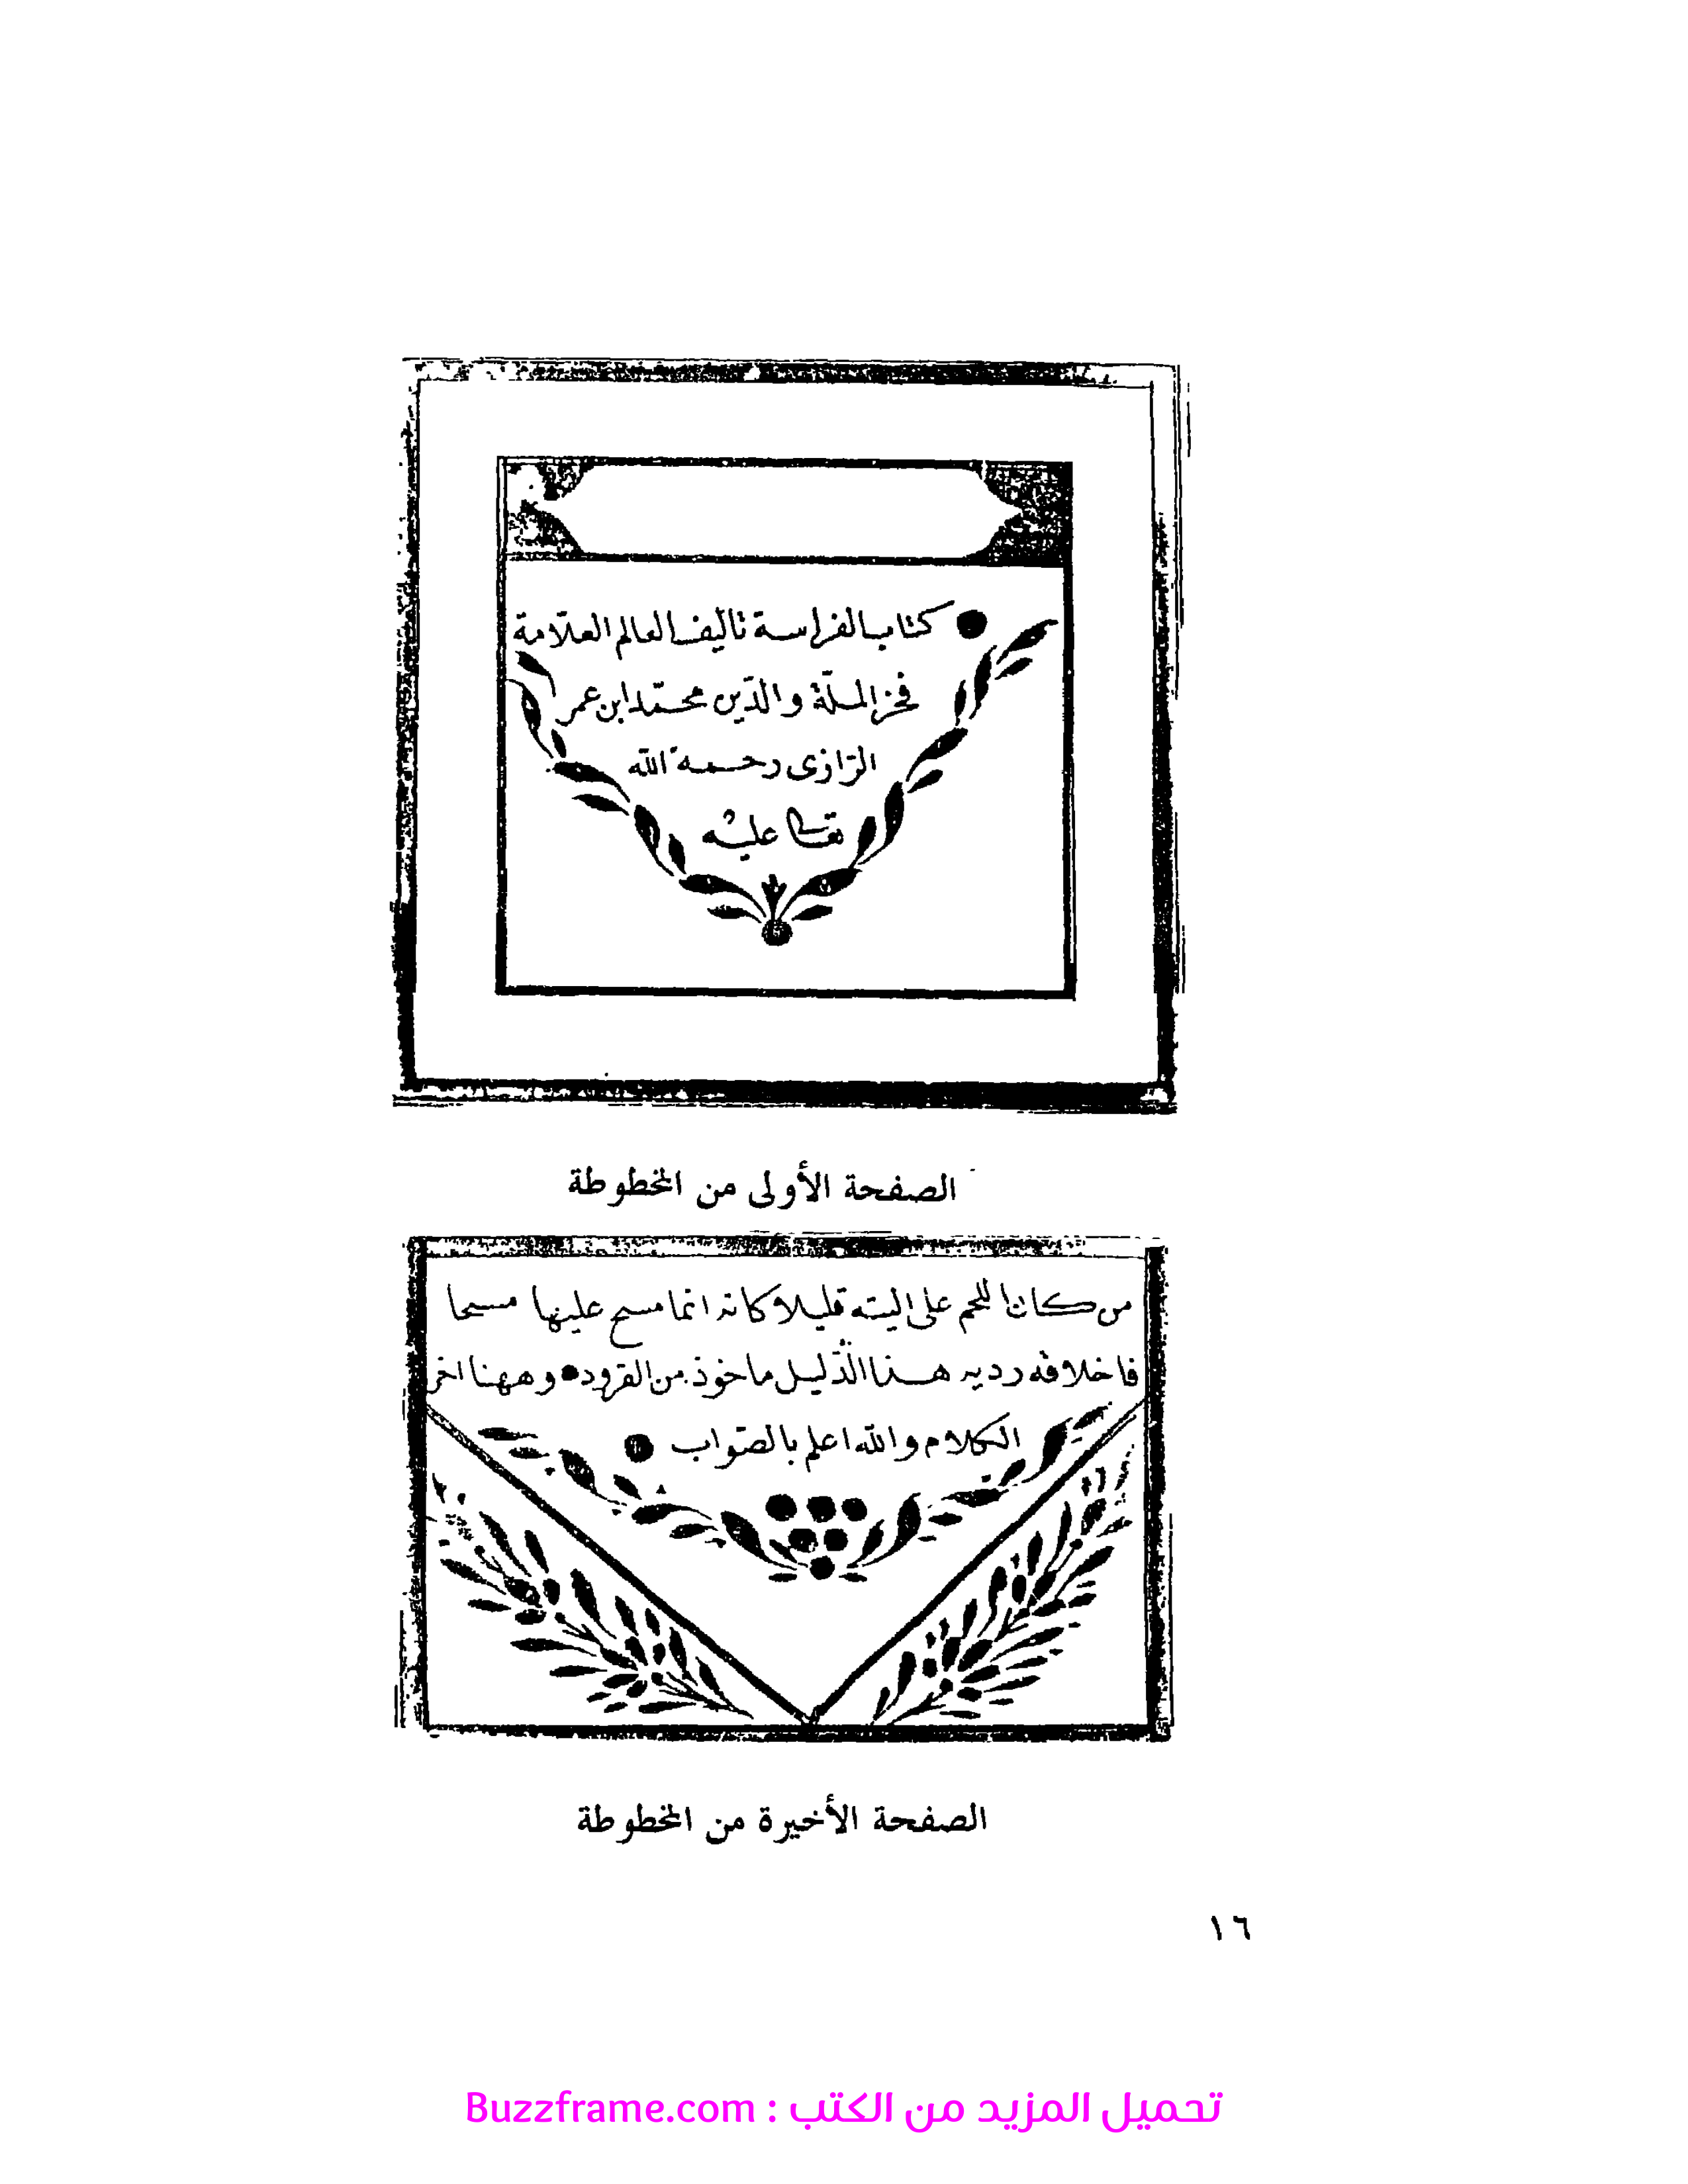 كتاب الفراسة تأليف العالم العلّامة
فخر الملّة والدّين محمّد ابن عمر
الرّازى رحمه الله
تعالى عليه
الصفحة الأولى من المخطوطة
من كان اللحم على اليته قليلا كانه انما مسح عليها مسحا
فاخلاقه رديه هذا الدّليل ماخوذ من القرود وههنا اخر
الكلام والله اعلم بالصّواب
الصفحة الأخيرة من المخطوطة
١٦
تحميل المزيد من الكتب : Buzzframe.com